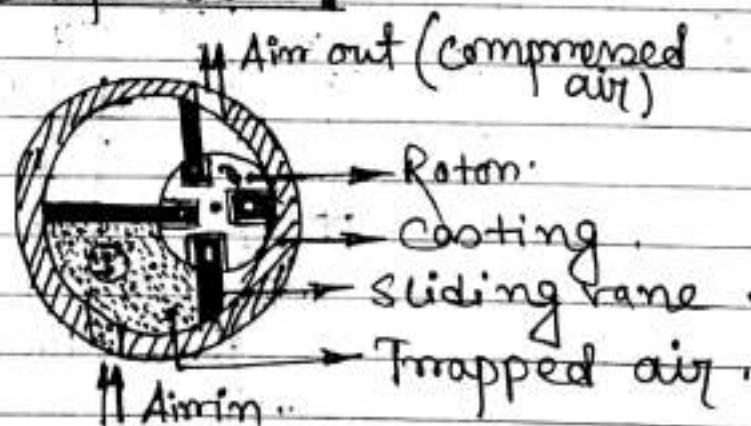 Air out (Compressed
air)
Rotor.
Casting.
Sliding vane.
Trapped air.
Air in..